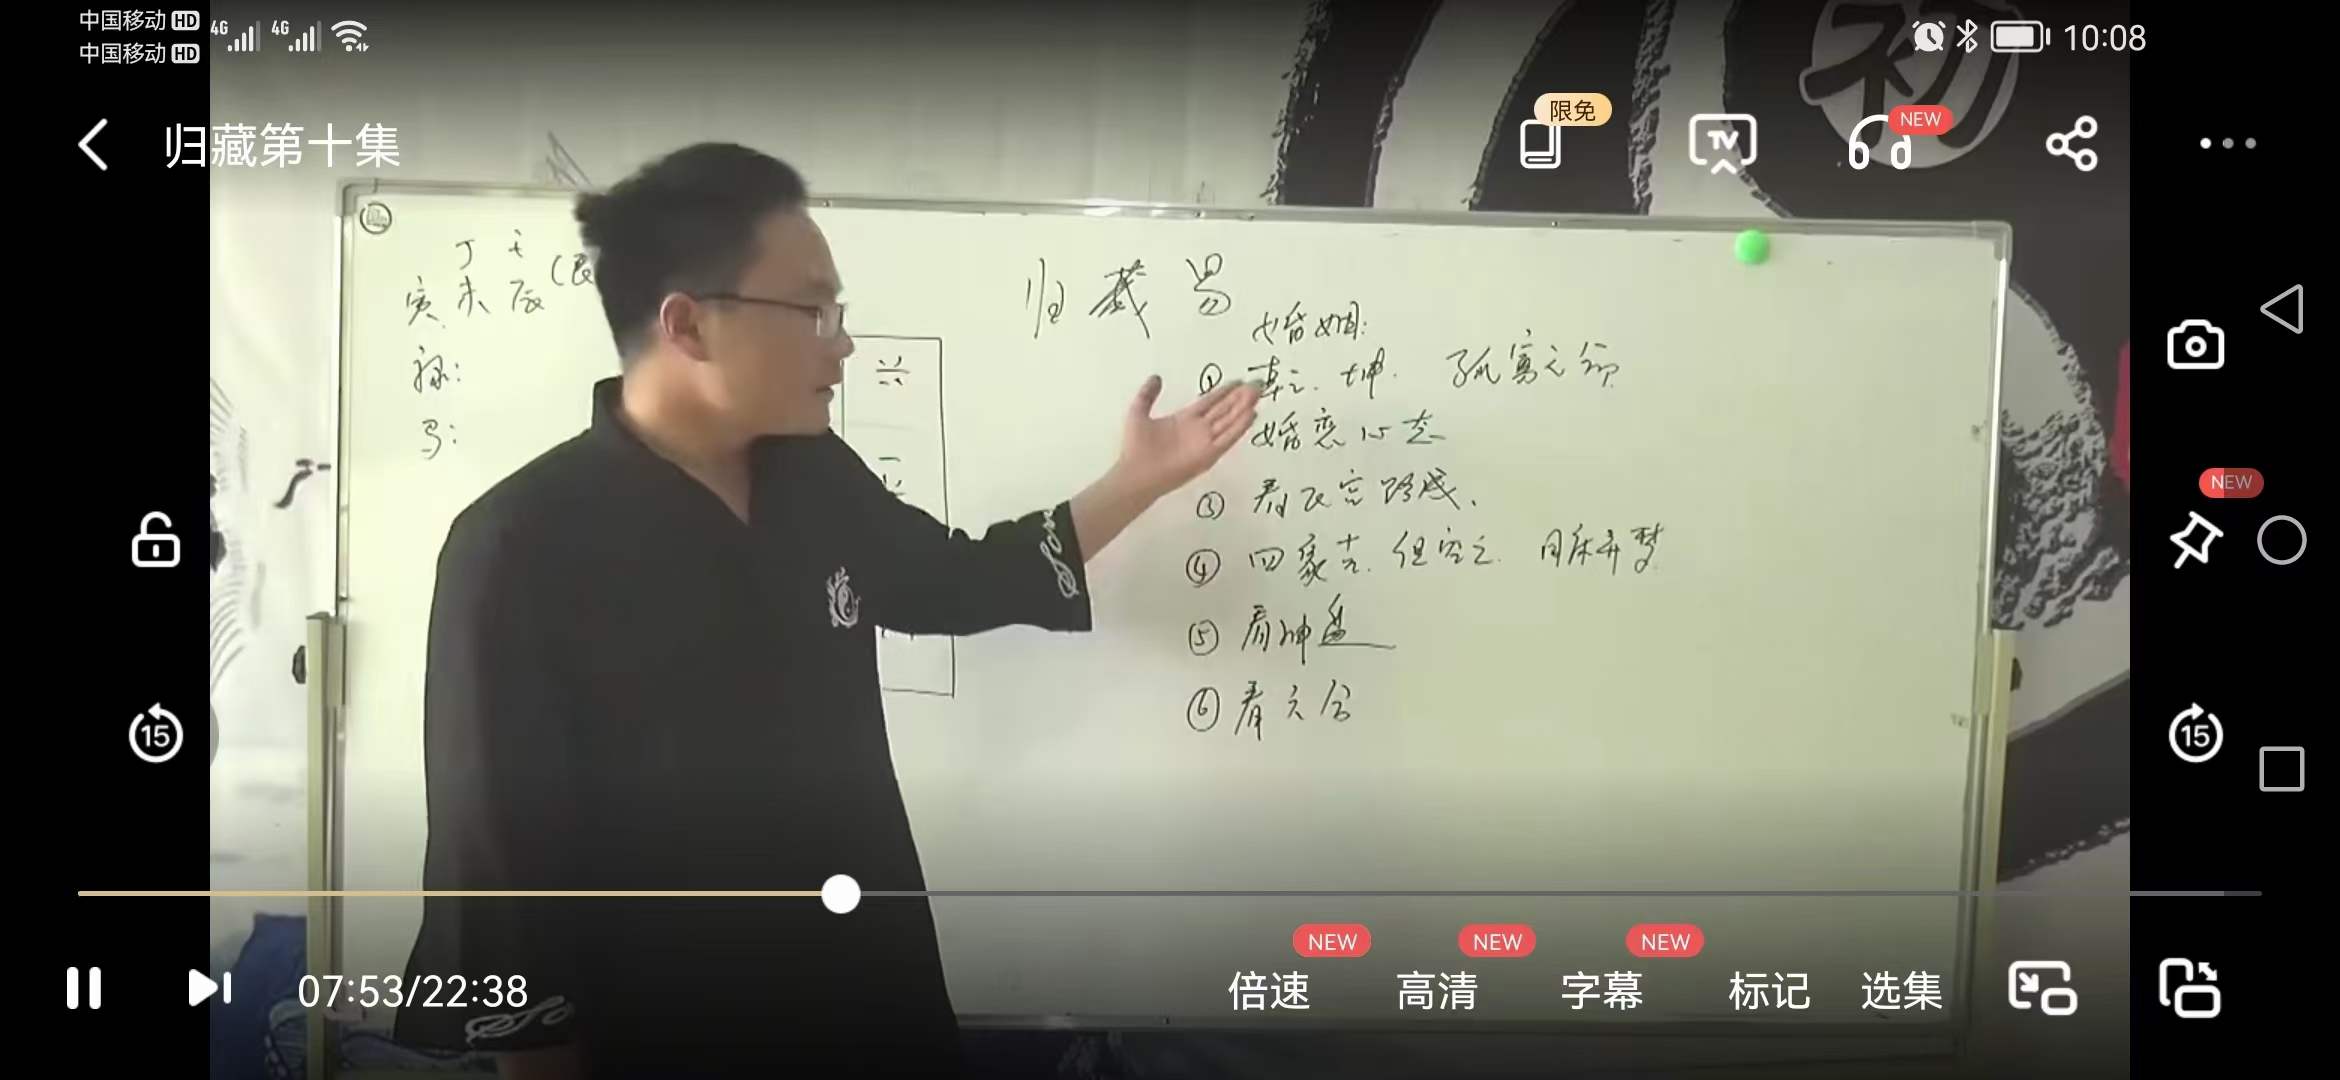 中国移动 HD 4G 4G
中国移动 HD
10:08
归藏第十集
限免
TV
NEW
初
丁
寅 未 辰
禄:
马:
归藏易
婚姻:
① 坤. 孤寡之命
婚恋心态
③ 看 宫
④ 四象吉. 但空之. 同床弃梦
⑤ 看神盘
⑥ 看六合
NEW
15
15
07:53/22:38
NEW NEW NEW
倍速 高清 字幕 标记 选集